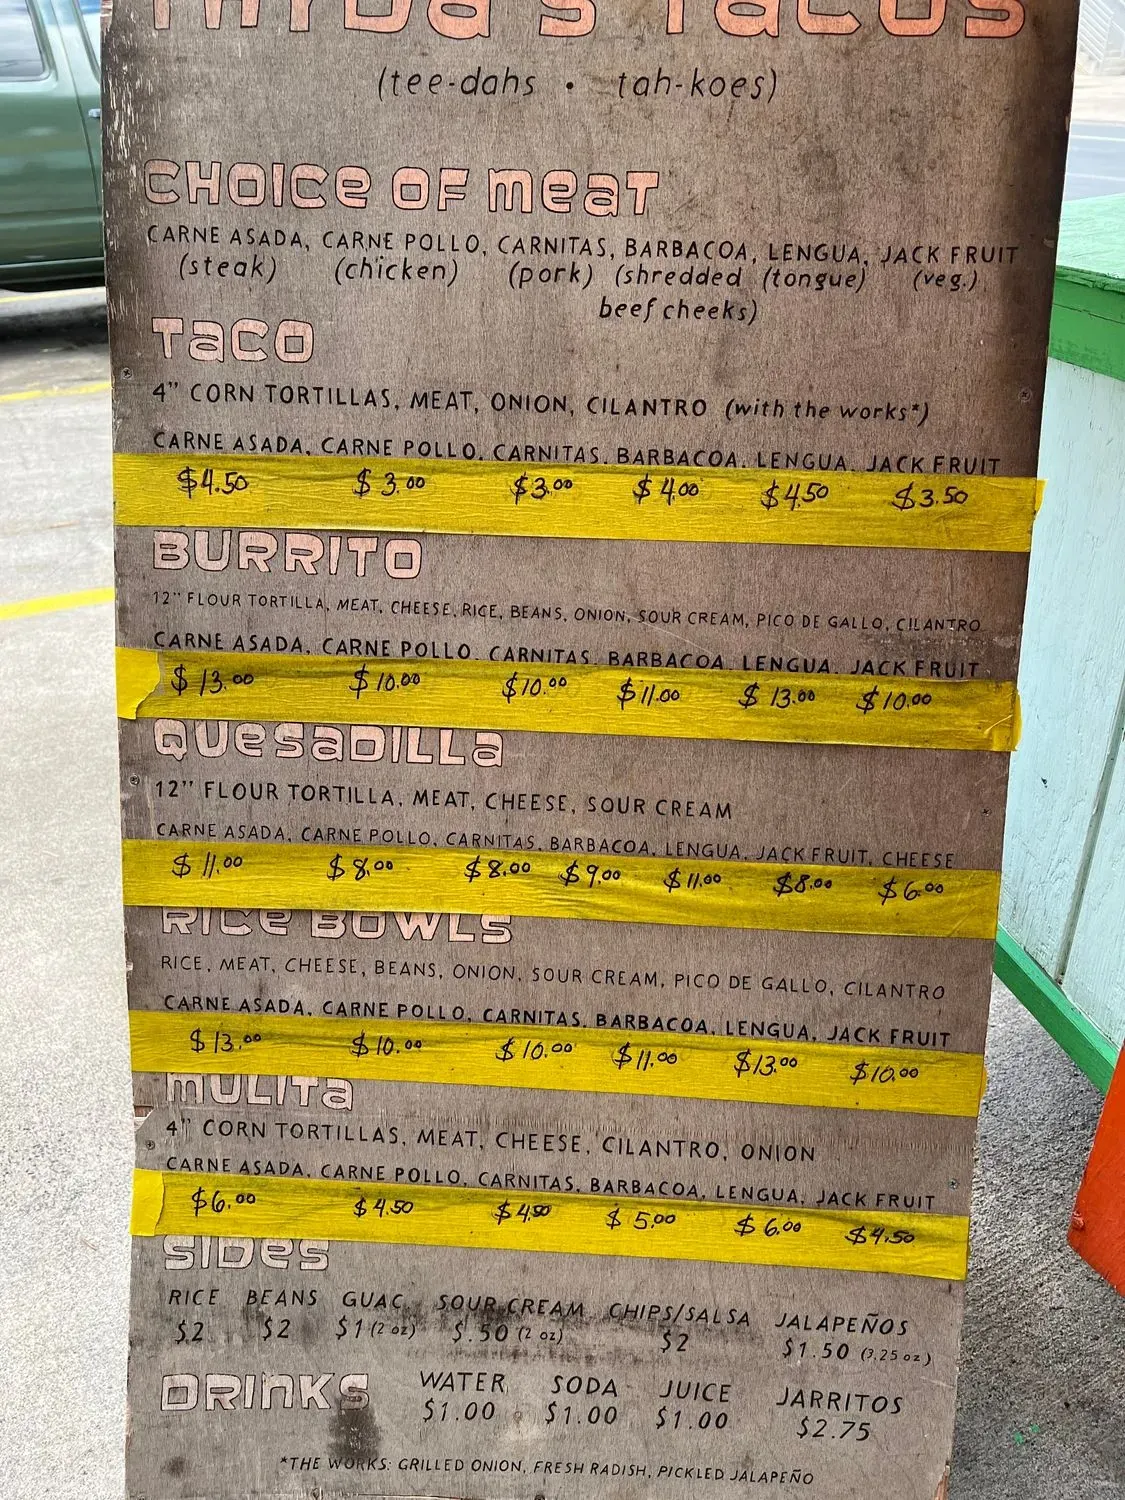 TACOS
(tee-dahs • tah-koes)
CHOICE OF MEAT
CARNE ASADA, CARNE POLLO, CARNITAS, BARBACOA, LENGUA, JACK FRUIT
(steak) (chicken) (pork) (shredded (tongue) (veg.)
beef cheeks)
TACO
4" CORN TORTILLAS, MEAT, ONION, CILANTRO (with the works*)
CARNE ASADA, CARNE POLLO, CARNITAS, BARBACOA, LENGUA, JACK FRUIT
$4.50 $3.00 $3.00 $4.00 $4.50 $3.50
BURRITO
12" FLOUR TORTILLA, MEAT, CHEESE, RICE, BEANS, ONION, SOUR CREAM, PICO DE GALLO, CILANTRO
CARNE ASADA, CARNE POLLO, CARNITAS, BARBACOA, LENGUA, JACK FRUIT
$13.00 $10.00 $10.00 $11.00 $13.00 $10.00
QUESADILLA
12" FLOUR TORTILLA, MEAT, CHEESE, SOUR CREAM
CARNE ASADA, CARNE POLLO, CARNITAS, BARBACOA, LENGUA, JACK FRUIT, CHEESE
$11.00 $8.00 $8.00 $9.00 $11.00 $8.00 $6.00
RICE BOWLS
RICE, MEAT, CHEESE, BEANS, ONION, SOUR CREAM, PICO DE GALLO, CILANTRO
CARNE ASADA, CARNE POLLO, CARNITAS, BARBACOA, LENGUA, JACK FRUIT
$13.00 $10.00 $10.00 $11.00 $13.00 $10.00
MULITA
4" CORN TORTILLAS, MEAT, CHEESE, CILANTRO, ONION
CARNE ASADA, CARNE POLLO, CARNITAS, BARBACOA, LENGUA, JACK FRUIT
$6.00 $4.50 $4.50 $5.00 $6.00 $4.50
SIDES
RICE BEANS GUAC SOUR CREAM CHIPS/SALSA JALAPEÑOS
$2 $2 $1 (2 oz) $.50 (2 oz) $2 $1.50 (3.25 oz)
DRINKS WATER SODA JUICE JARRITOS
$1.00 $1.00 $1.00 $2.75
*THE WORKS: GRILLED ONION, FRESH RADISH, PICKLED JALAPEÑO